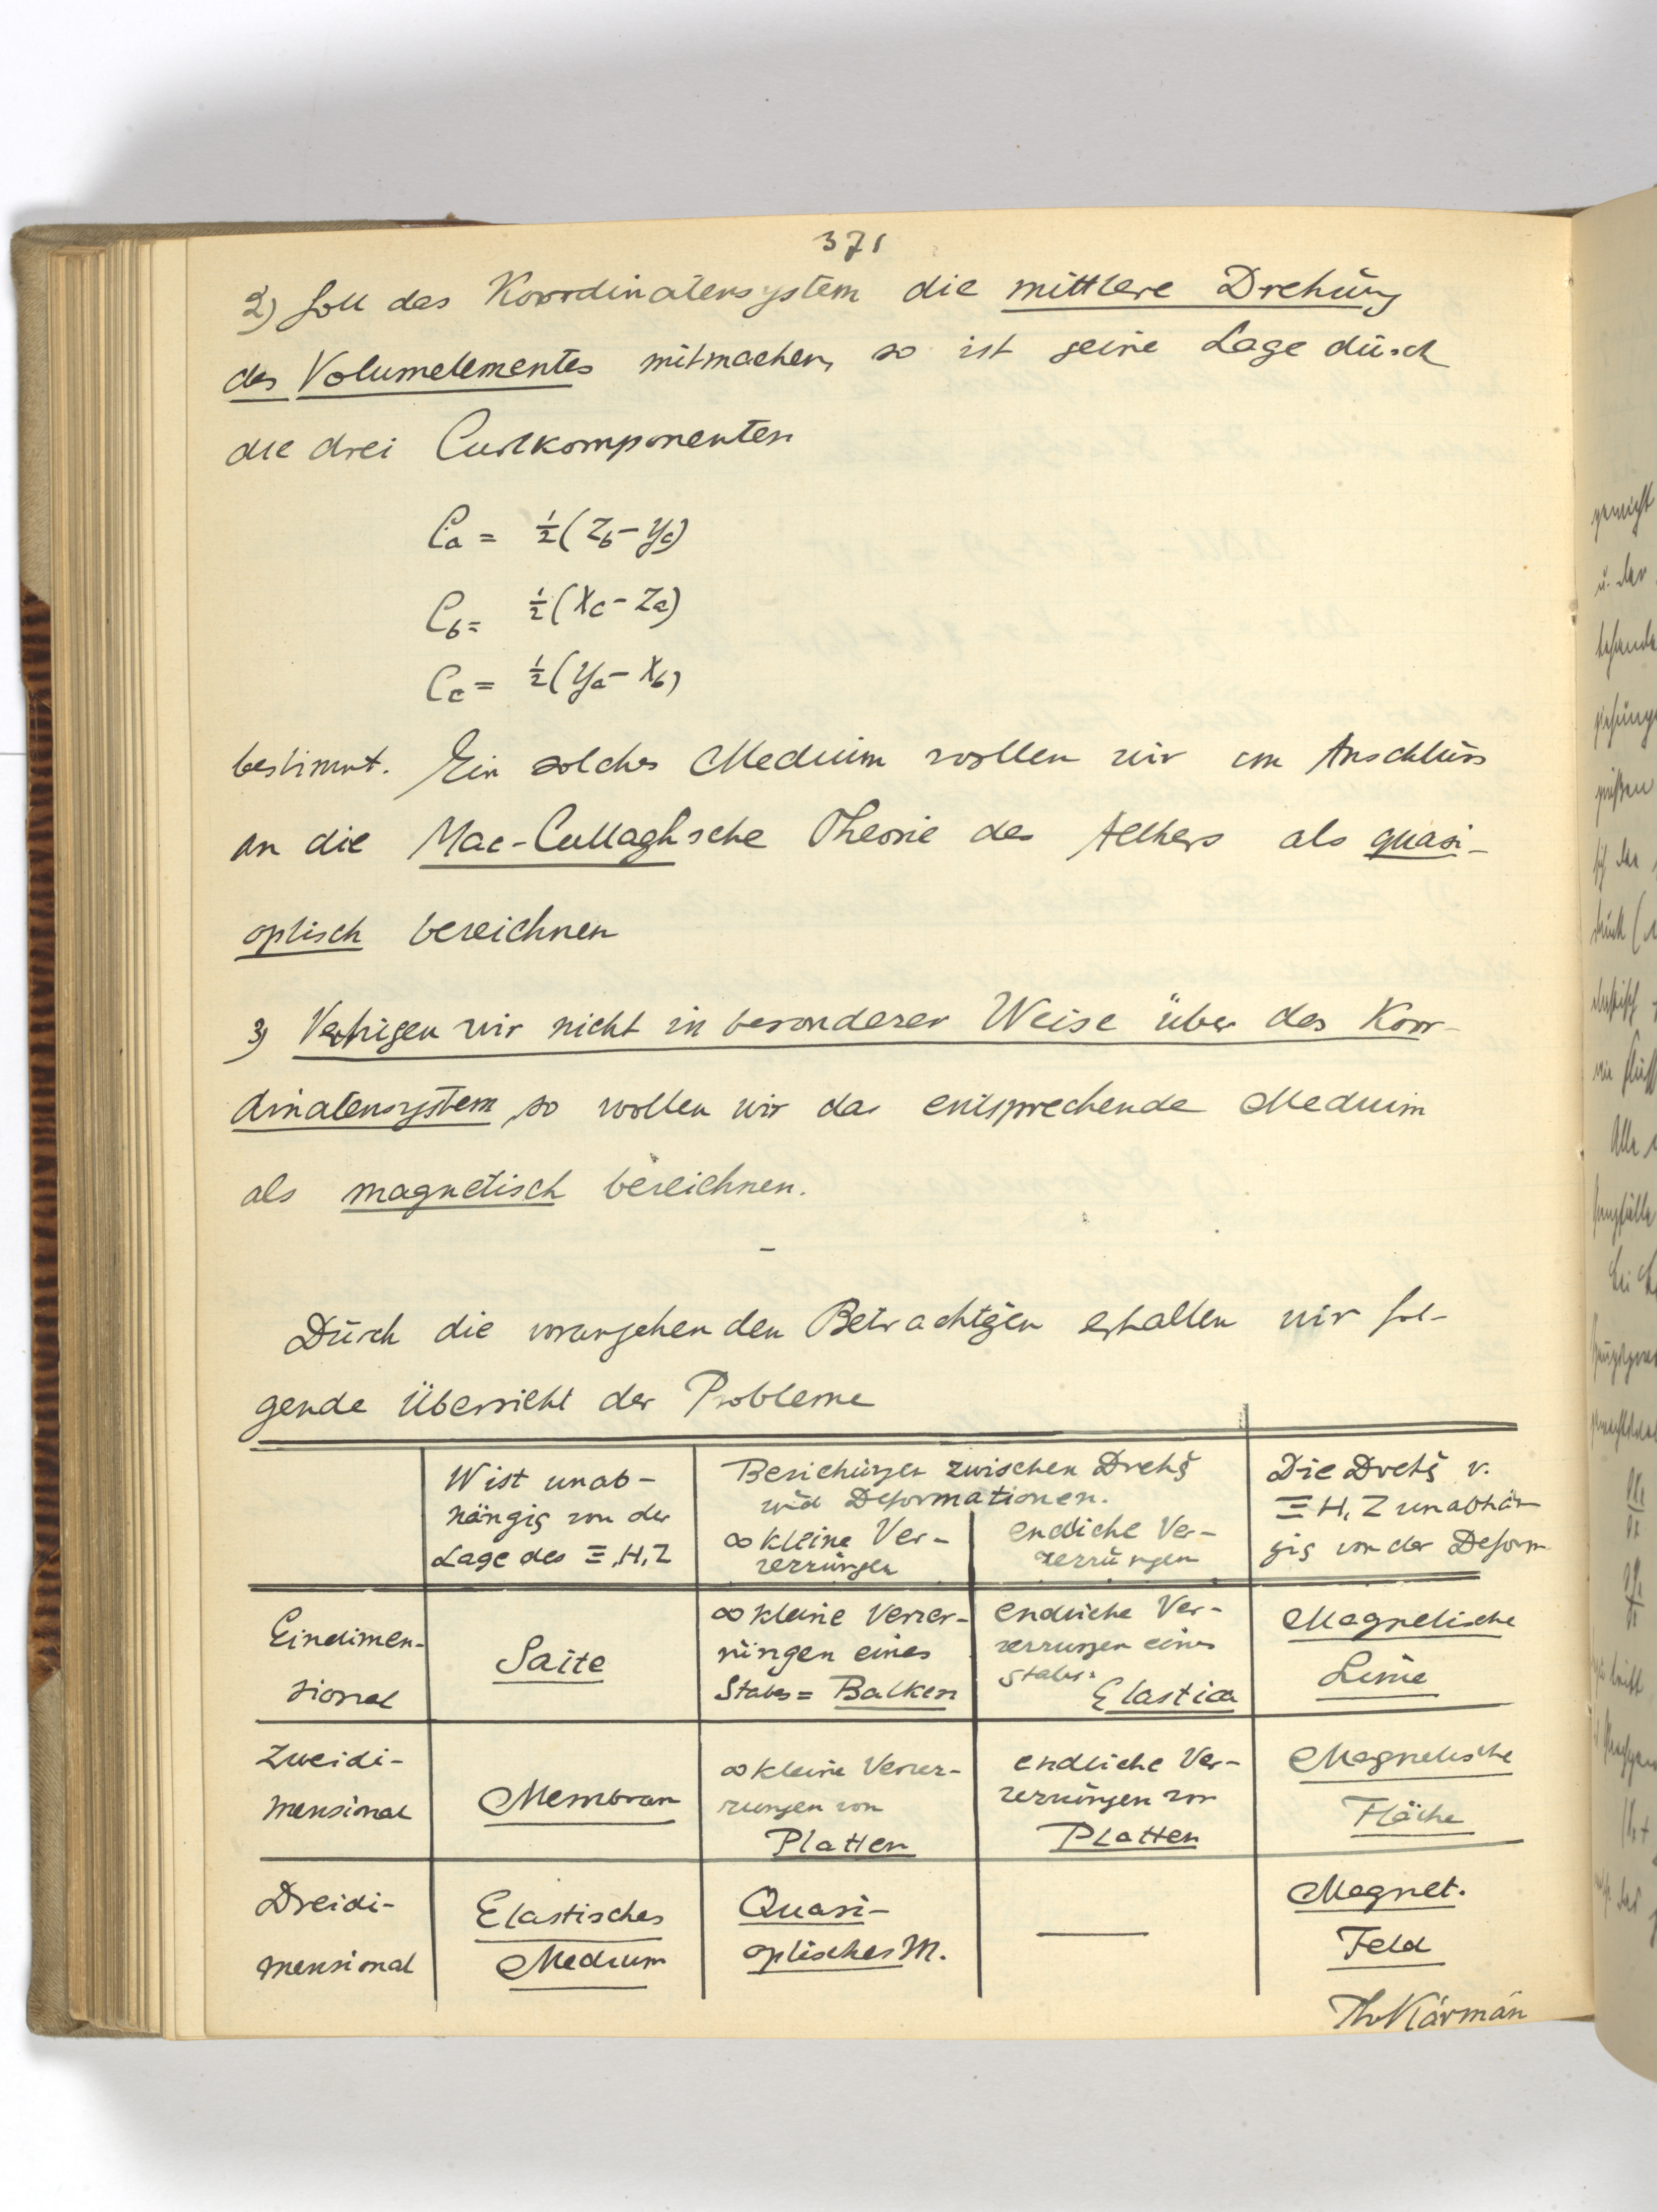 371
2) Soll das Koordinatensystem die mittlere Drehung
des Volumelementes mitmachen, so ist seine Lage durch
die drei Curlkomponenten
C_a = ½(z_b − y_c)
C_b = ½(x_c − z_a)
C_c = ½(y_a − x_b)
bestimmt. Ein solches Medium wollen wir im Anschluss
an die Mac-Cullaghsche Theorie des Aethers als quasi-
optisch bezeichnen
3) Verfügen wir nicht in besonderer Weise über das Koor-
dinatensystem, so wollen wir das entsprechende Medium
als magnetisch bezeichnen.
–
Durch die vorangehenden Betrachtgen erhalten wir fol-
gende Übersicht der Probleme
W ist unab-
hängig von der
Lage des Ξ, H, Z
Beziehungen zwischen Drehg
und Deformationen.
∞ kleine Ver-
zerrungen
endliche Ver-
zerrungen
Die Drehg v.
Ξ H, Z unabhän
gig von der Deform.
Eindimen-
sional
Saite
∞ kleine Verzer-
rungen eines
Stabes = Balken
endliche Ver-
zerrungen eines
Stabes:
Elastica
Magnetische
Linie
Zweidi-
mensional
Membran
∞ kleine Verzer-
rungen von
Platten
endliche Ver-
zerrungen von
Platten
Magnetische
Fläche
Dreidi-
mensional
Elastisches
Medium
Quasi-
optisches M.
—
Magnet.
Feld
Th v Kármán